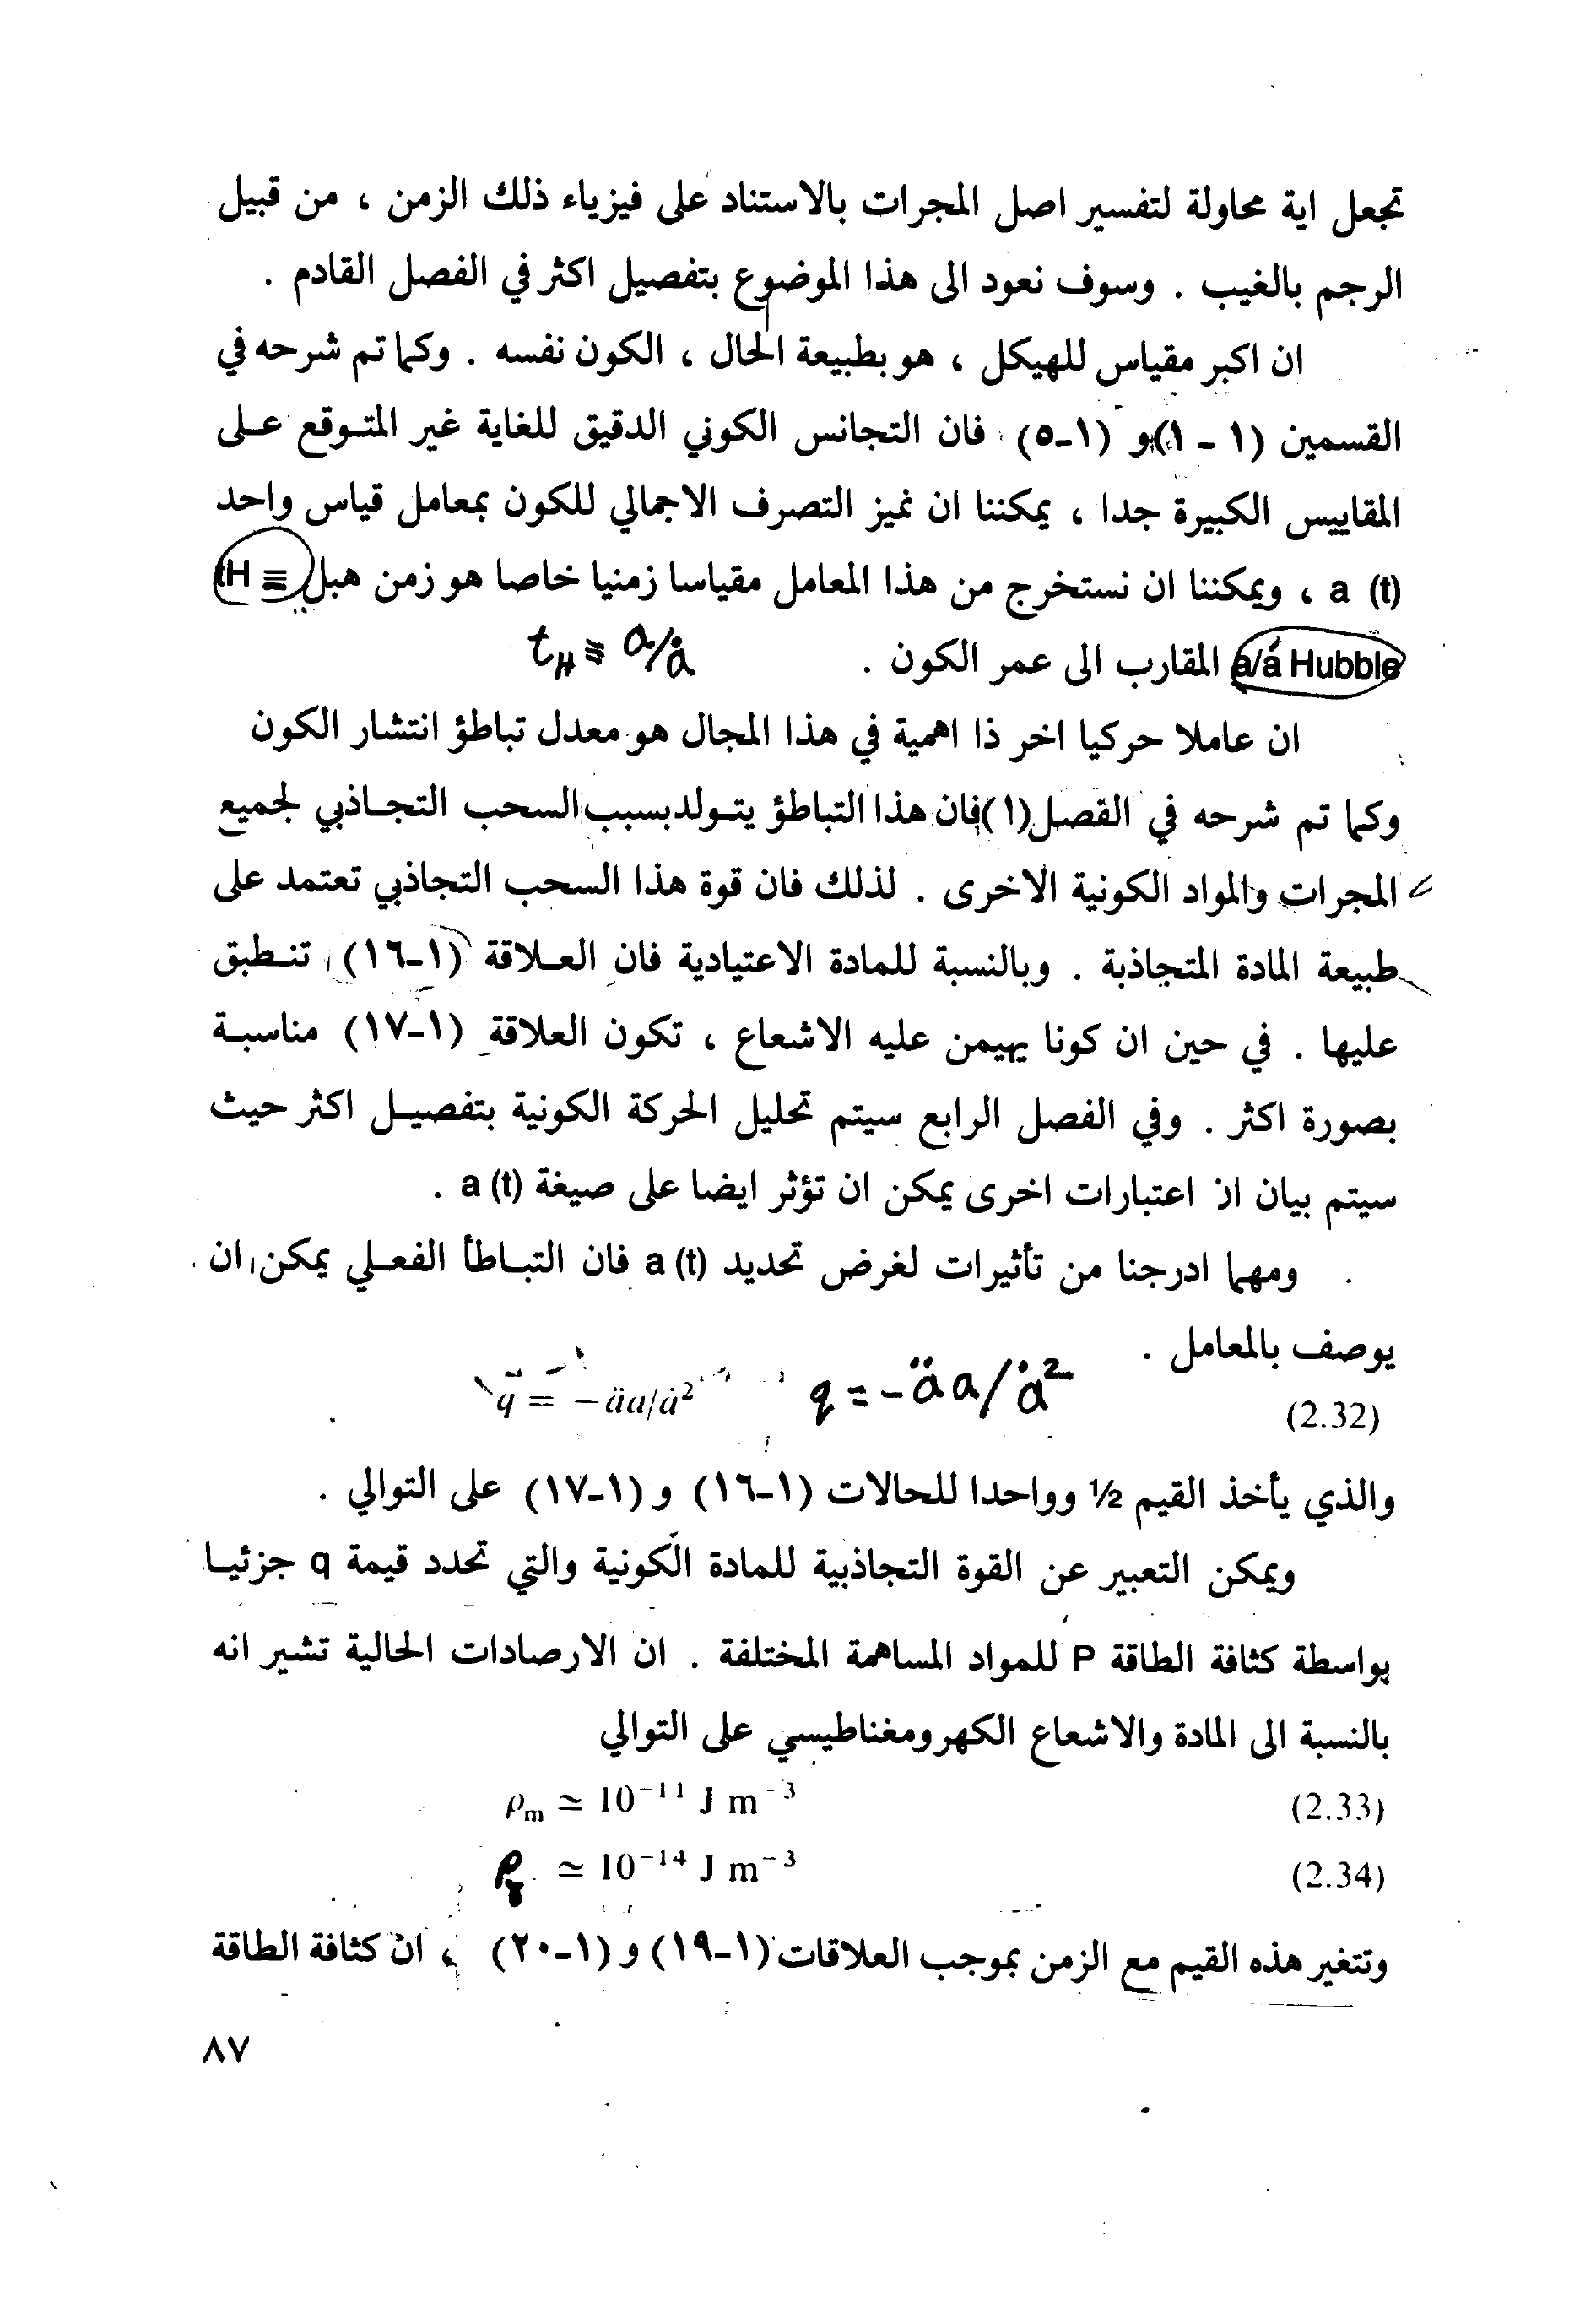 تجعل اية محاولة لتفسير اصل المجرات بالاستناد على فيزياء ذلك الزمن ، من قبيل
الرجم بالغيب . وسوف نعود الى هذا الموضوع بتفصيل اكثر في الفصل القادم .
ان اكبر مقياس للهيكل ، هو بطبيعة الحال ، الكون نفسه . وكما تم شرحه في
القسمين (١ - ١) و (١-٥) فان التجانس الكوني الدقيق للغاية غير المتوقع على
المقاييس الكبيرة جدا ، يمكننا ان نميز التصرف الاجمالي للكون بمعامل قياس واحد
a (t) ، ويمكننا ان نستخرج من هذا المعامل مقياسا زمنيا خاصا هو زمن هبل tH ≡
a/á Hubble المقارب الى عمر الكون . t_H ≡ a/ȧ
ان عاملا حركيا اخر ذا اهمية في هذا المجال هو معدل تباطؤ انتشار الكون
وكما تم شرحه في القصل (١) فان هذا التباطؤ يتولد بسبب السحب التجاذبي لجميع
المجرات والمواد الكونية الاخرى . لذلك فان قوة هذا السحب التجاذبي تعتمد على
طبيعة المادة المتجاذبة . وبالنسبة للمادة الاعتيادية فان العلاقة (١-١٦) تنطبق
عليها . في حين ان كونا يهيمن عليه الاشعاع ، تكون العلاقة (١-١٧) مناسبة
بصورة اكثر . وفي الفصل الرابع سيتم تحليل الحركة الكونية بتفصيل اكثر حيث
سيتم بيان ان اعتبارات اخرى يمكن ان تؤثر ايضا على صيغة a (t) .
ومهما ادرجنا من تأثيرات لغرض تحديد a (t) فان التباطأ الفعلي يمكن ان
يوصف بالمعامل .
q = −äa/ȧ² q = -äa/ȧ² (2.32)
والذي يأخذ القيم ½ وواحدا للحالات (١-١٦) و (١-١٧) على التوالي .
ويمكن التعبير عن القوة التجاذبية للمادة الكونية والتي تحدد قيمة q جزئيا
بواسطة كثافة الطاقة P للمواد المساهمة المختلفة . ان الارصادات الحالية تشير انه
بالنسبة الى المادة والاشعاع الكهرومغناطيسي على التوالي
ρ_m ≃ 10⁻¹¹ J m⁻³ (2.33)
ρ_γ ≃ 10⁻¹⁴ J m⁻³ (2.34)
وتتغير هذه القيم مع الزمن بموجب العلاقات (١-١٩) و (١-٢٠) ، ان كثافة الطاقة
٨٧